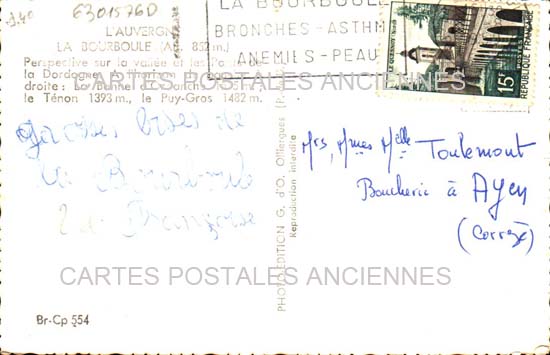 3.40
6301576D
L'AUVERGNE
LA BOURBOULE (Alt. 852 m.)
Perspective sur la vallée et les
la Dordogne
droite : La
le Ténon 1393 m., le Puy-Gros 1482 m.
LA BOURBOULE
BRONCHES - ASTHM
ANEMIES - PEAU
15F
REPUBLIQUE FRANÇAISE
CARTES POSTALES ANCIENNES
Grosses bises de
La Bourboule
Mrs, Mmes Melle Toulemont
Boucherie à Ayen
(Corrèze)
PHOTO-EDITION G. d'O. Olliergues (P.
Reproduction interdite
CARTES POSTALES ANCIENNES
Br-Cp 554